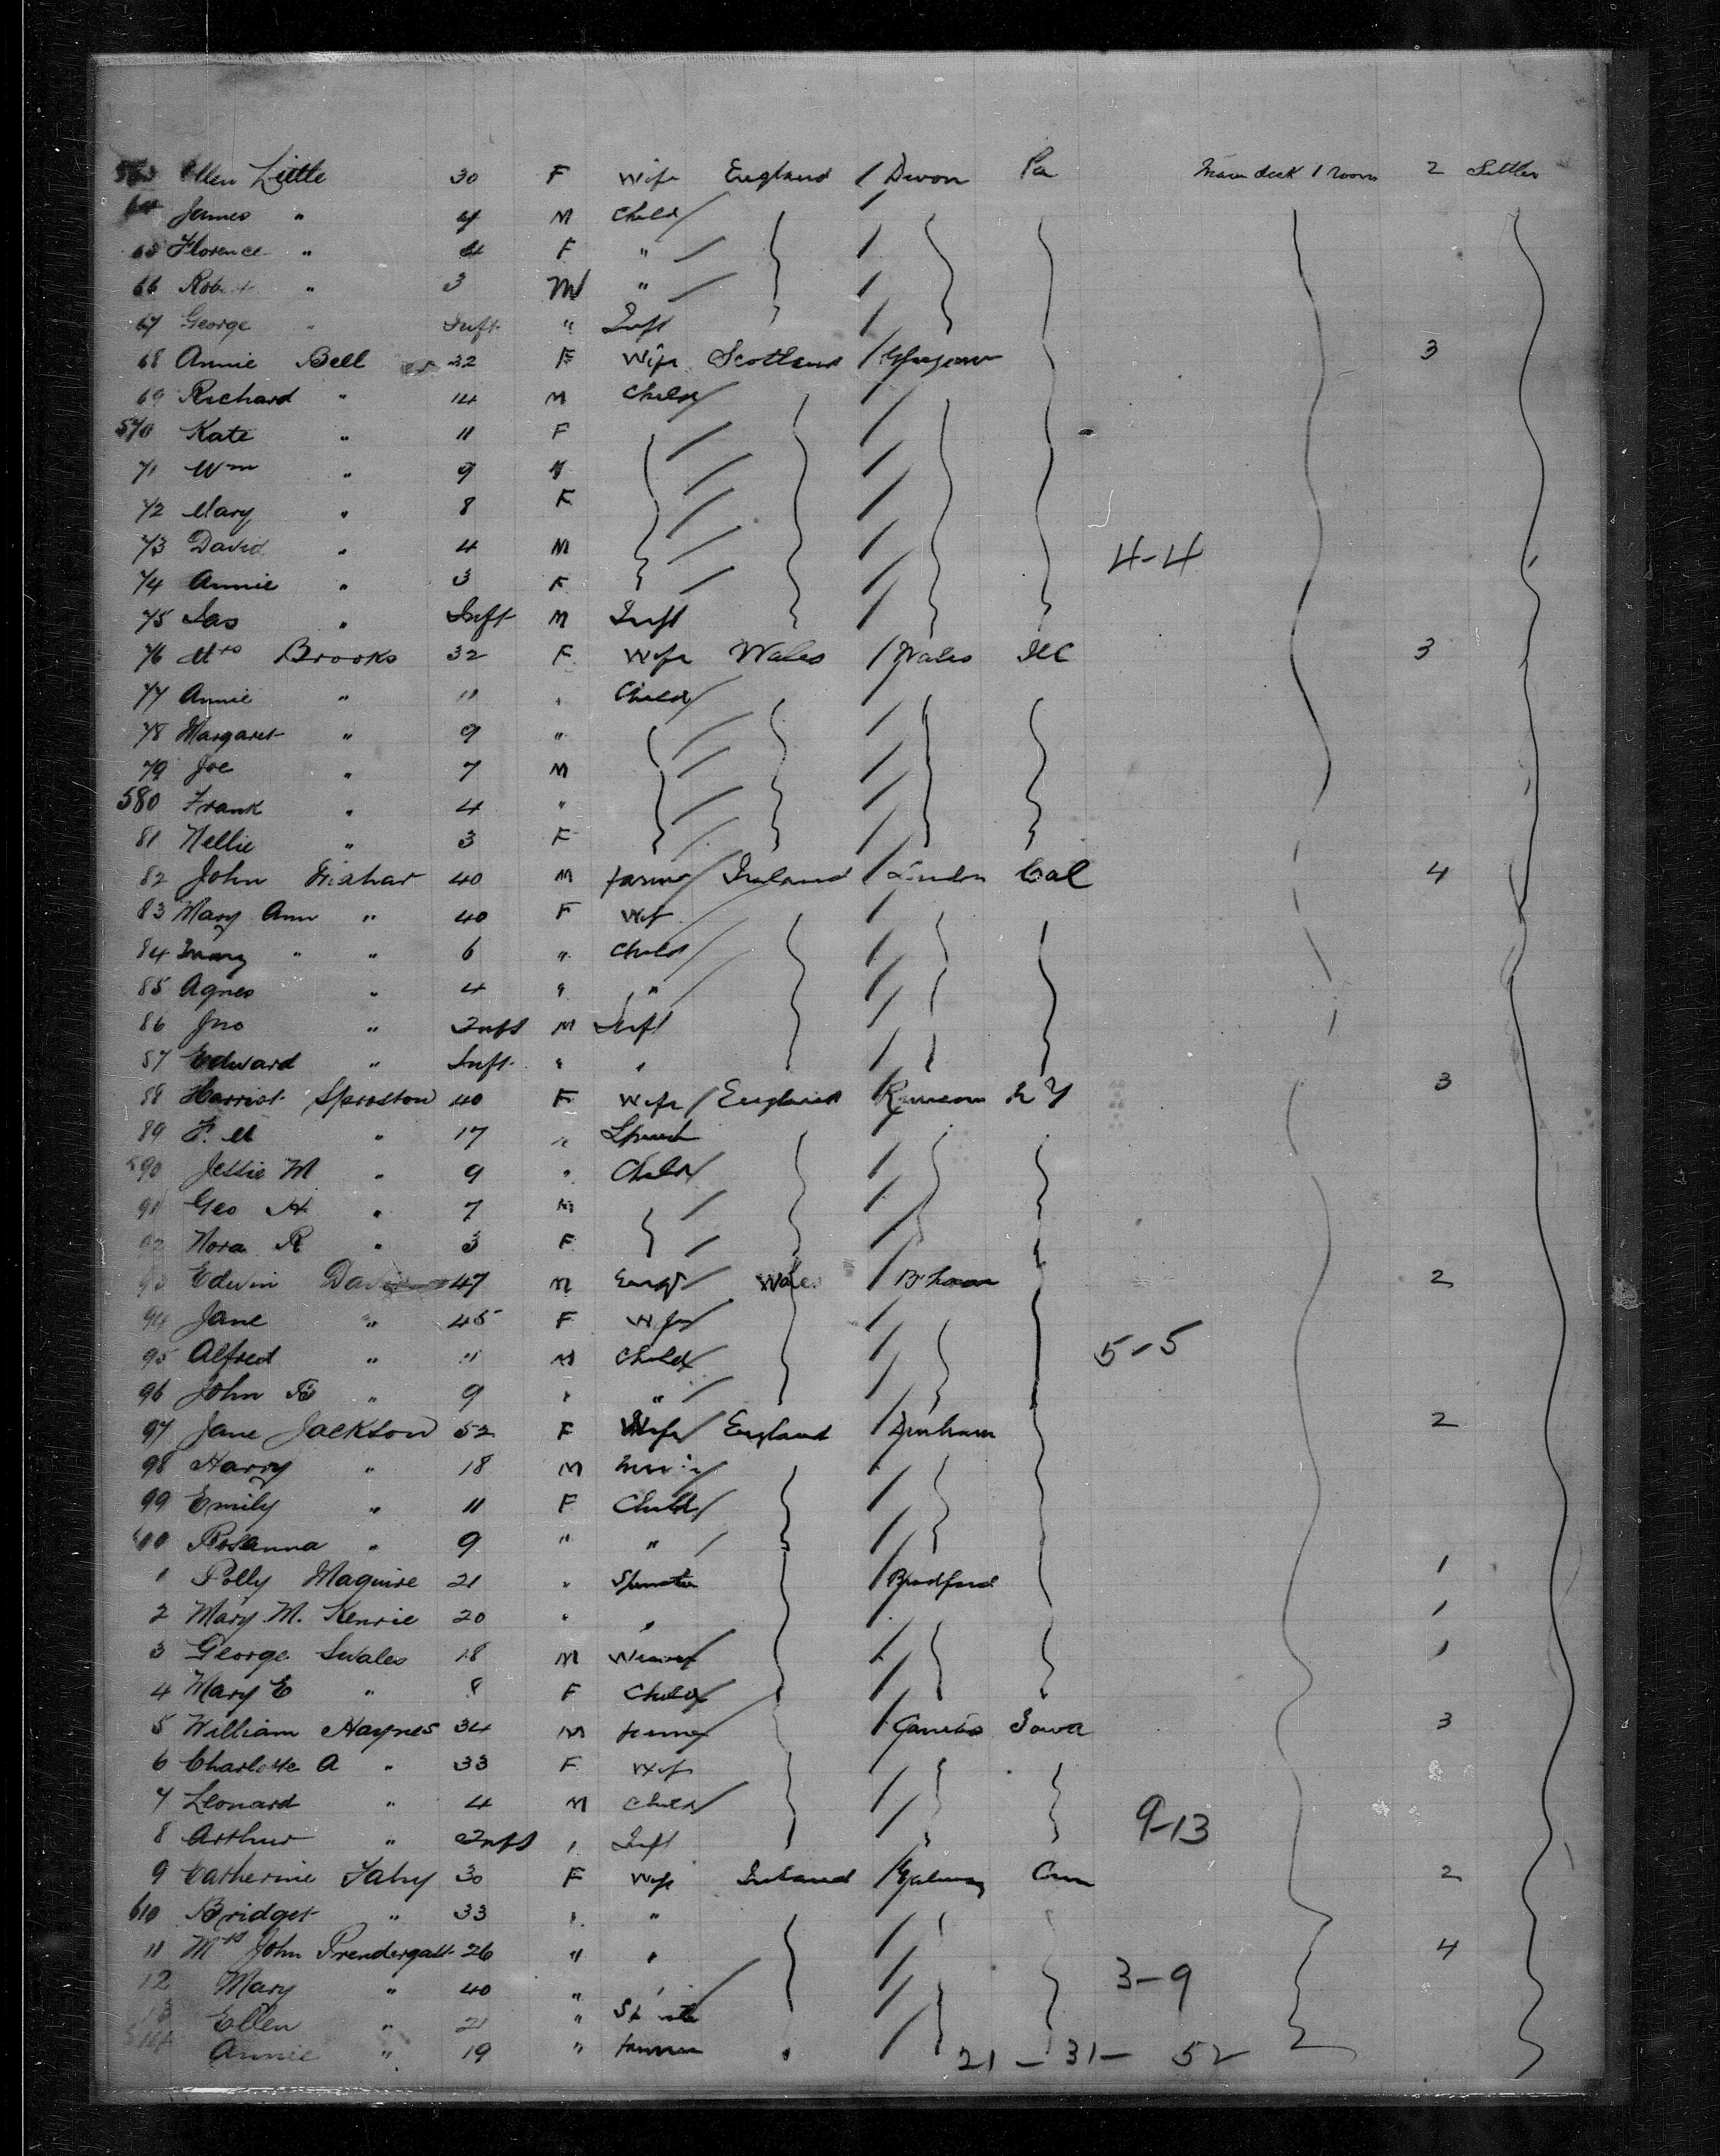 563 Ellen Little 30 F Wife England / Devon Pa Main deck 1 room 2 Settler
64 James " 9 M Child
65 Florence " 4 F "
66 Robert " 3 M "
67 George " Inft " Inft
68 Annie Bell 32 F Wife Scotland / Glasgow 3
69 Richard " 14 M Child
570 Kate " 11 F
71 Wm " 9 M
72 Mary " 8 F
73 David " 4 M 4-4
74 Annie " 3 F
75 Jas " Inft M Inft
76 Mrs Brooks 32 F Wife Wales / Wales Ill 3
77 Annie " 11 " Child
78 Margaret " 9 "
79 Joe " 7 M
580 Frank " 4 "
81 Nellie " 3 F
82 John 40 M farmer Ireland / London Cal 4
83 Mary Ann " 40 F Wif
84 " " 6 " Child
85 Agnes " 4 " "
86 Jno " Inft M Inft
87 Edward " Inft " "
88 Harriot Sproston 40 F Wife England N Y 3
89 F. M " 17 "
590 Jessie M " 9 " Child
91 Geo H " 7 M
92 Nora R " 3 F
93 Edwin Davis 47 M Wales / B'ham 2
94 Jane " 45 F Wife
95 Alfred " 11 M Child 5-5
96 John R " 9 " "
97 Jane Jackson 52 F Wife England / Durham 2
98 Harry " 18 M
99 Emily " 11 F Child
600 Rosanna " 9 " "
1 Polly Maguire 21 " Spinster / Bradford 1
2 Mary M. Kenrie 20 " " 1
3 George Swales 18 M Weaver 1
4 Mary E " 8 F Child
5 William Haynes 34 M farmer Iowa 3
6 Charlotte A " 33 F Wif
7 Leonard " 4 M Child
8 Arthur " Inft " Inft 9-13
9 Catherine Fahy 30 F Wife Ireland / Galway Conn 2
610 Bridget " 33 " "
11 Mrs John Prendergast 26 " " 4
12 Mary " 40 " " 3-9
13 Ellen " 21 " Spinster
614 Annie " 19 " "
21 - 31 - 52